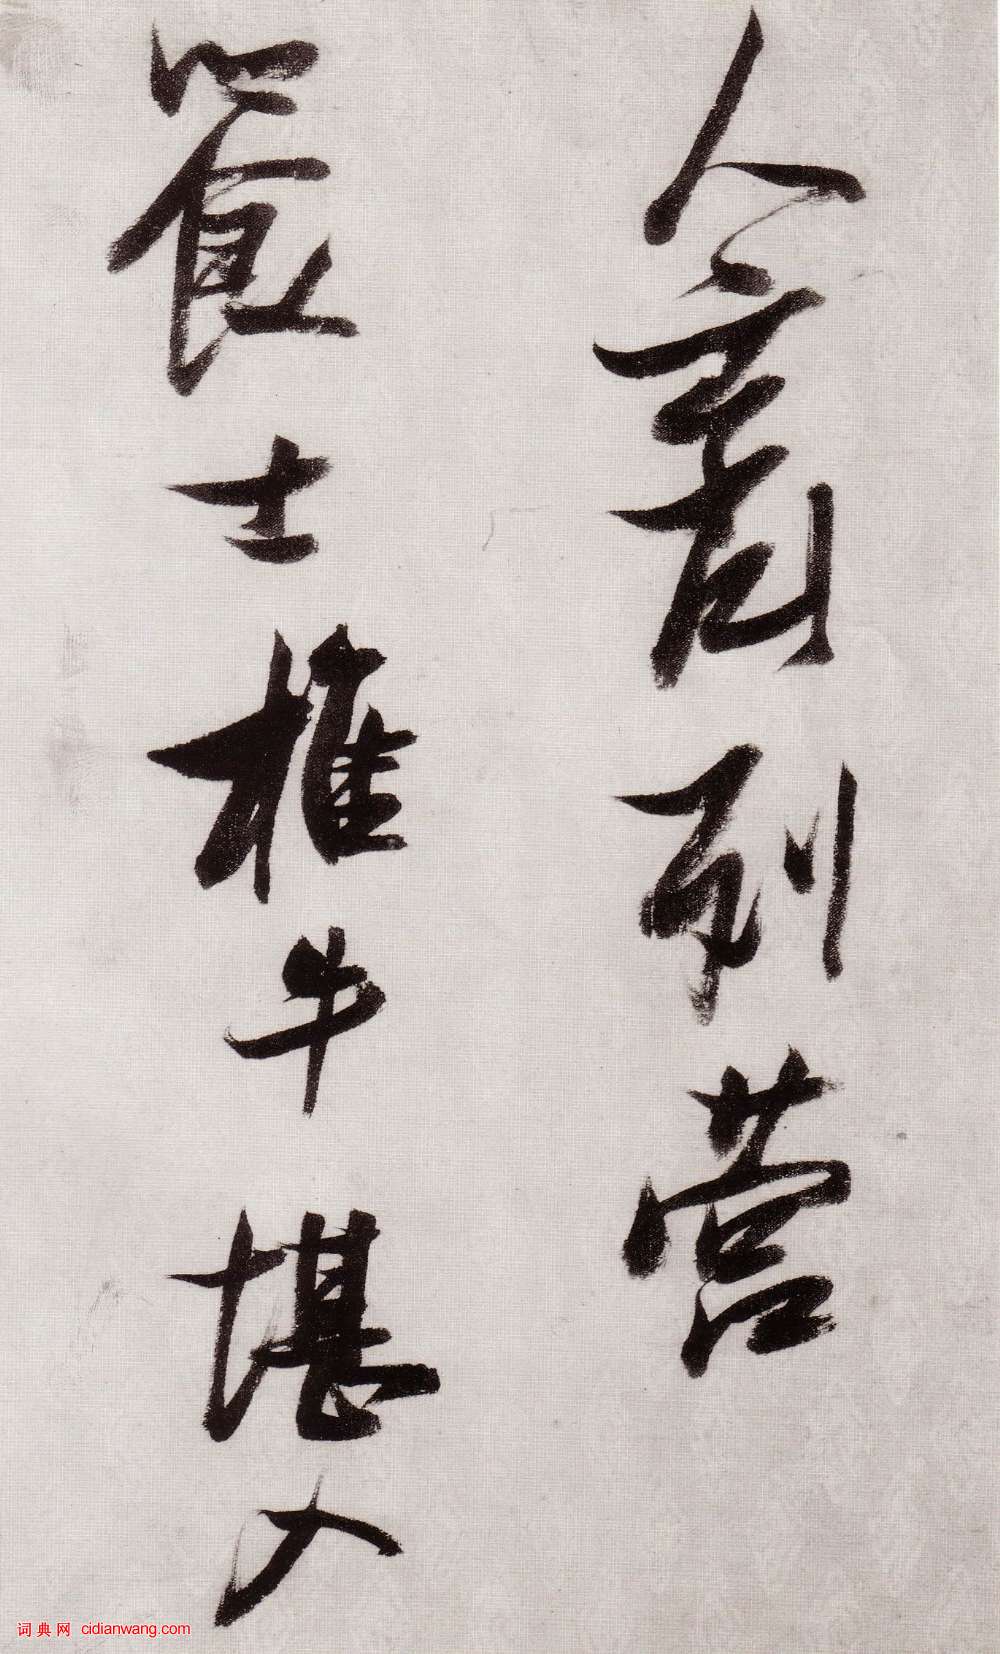 人列营
饗士椎牛堪入
词典网 cidianwang.com